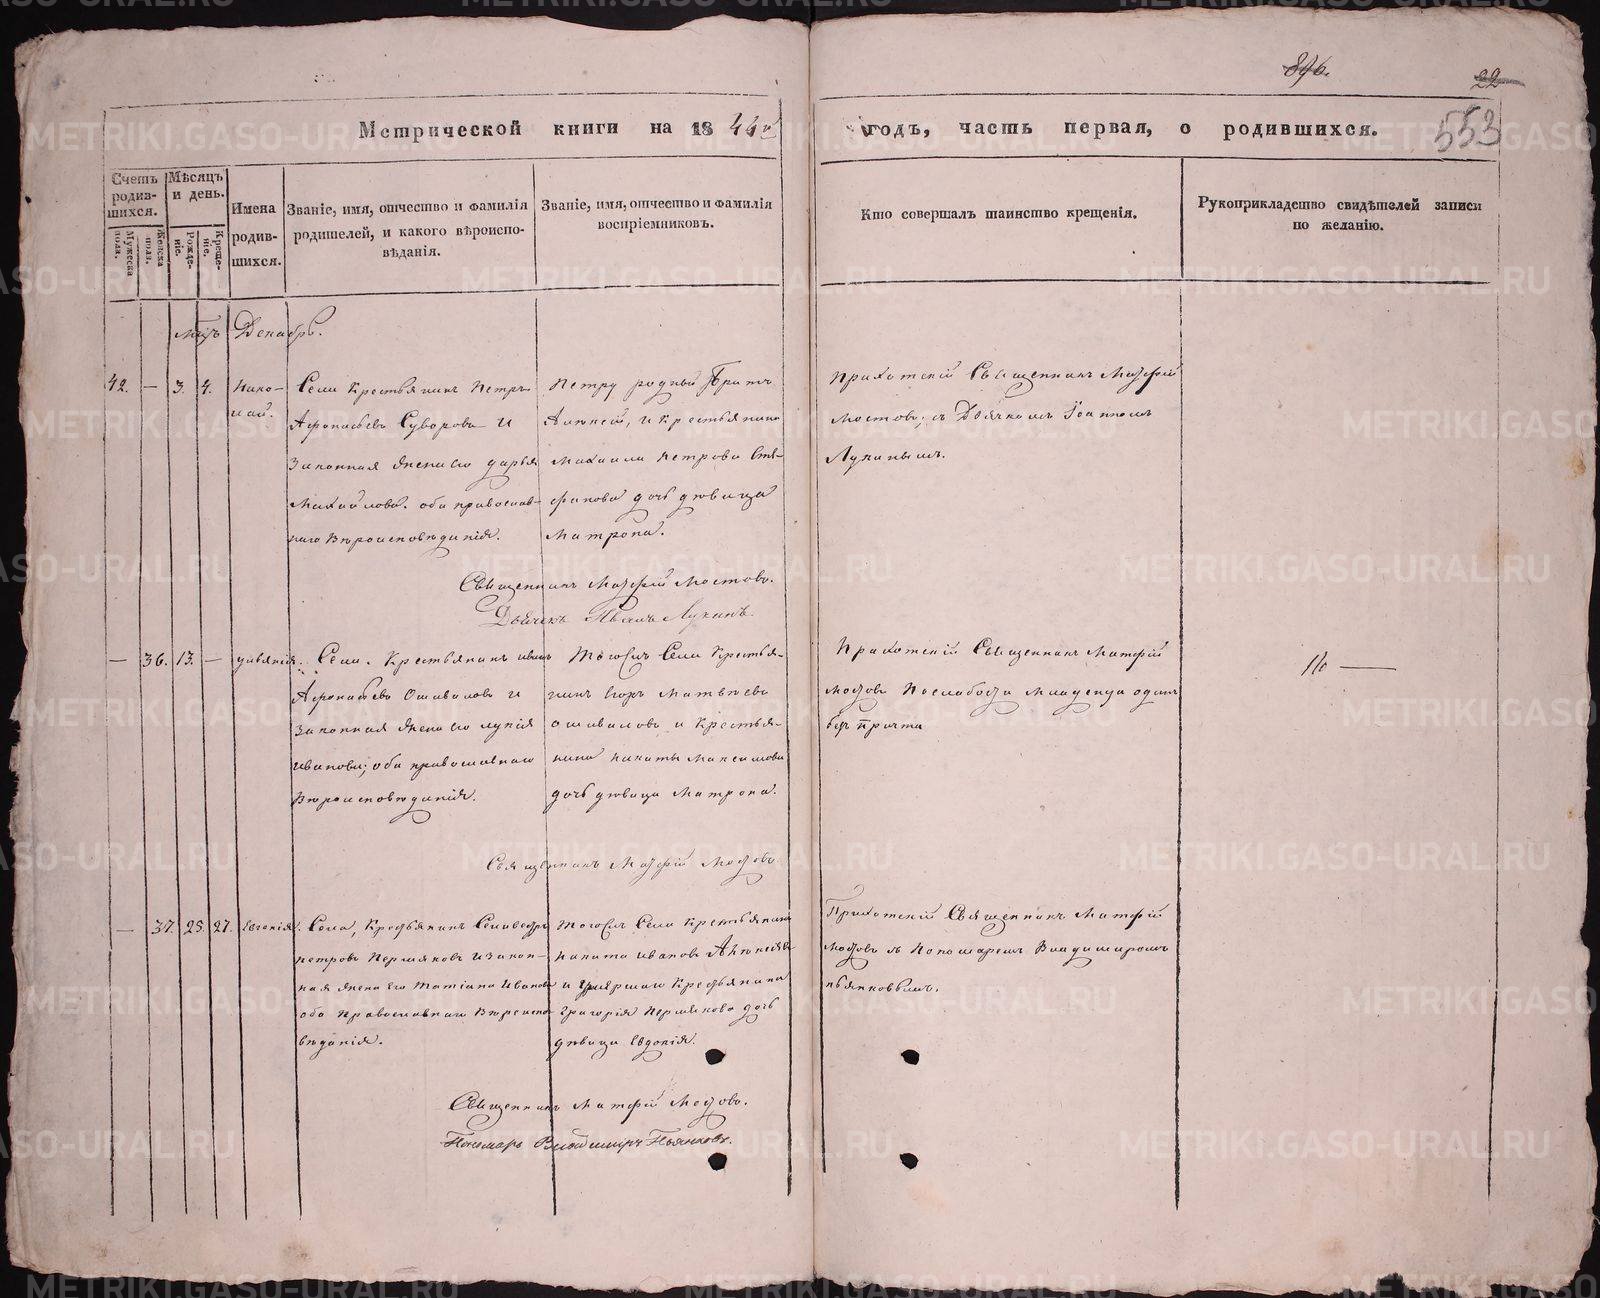 896.
22
553
Метрической книги на 1844й годъ, часть первая, о родившихся.
Счетъ родив-шихся.
Мужеска пола.
Женска пола.
Мѣсяцъ и день.
Рожде-ніе.
Креще-ніе.
Имена родив-шихся.
Званіе, имя, отчество и фамилія
родителей, и какого вѣроиспо-
вѣданія.
Званіе, имя, отчество и фамилія
воспріемниковъ.
Кто совершалъ таинство крещенія.
Рукоприкладство свидѣтелей записи
по желанію.
Декабрь.
42. — 3. 4. Нико-
лай.
Села Крестьянинъ Петръ
Афонасьевъ Суворовъ и
Законная жена его дарья
Михайлова. оба православ-
наго Вѣроисповѣданія.
Петру родный Братъ
Алексѣй, и Крестьянина
Михаила Петрова Сте-
фанова дочь дѣвица
Матрона.
Приходскій Священникъ Матфій
Мостовъ, съ Дьячкомъ Іоанномъ
Лукинымъ.
Священникъ Матфій Мостовъ.
Дьячекъ Иванъ Лукинъ.
— 36. 13. —
Села. Крестьянинъ иванъ
Афонасьевъ Ошиваловъ и
Законная жена его лукія
иванова; оба православнаго
Вѣроисповѣданія.
Тогожъ Села Крестья-
нинъ Егоръ Матвѣевъ
ошиваловъ и Крестья-
нина никиты Максимова
дочь дѣвица Матрона.
Приходскій Священникъ Матфій
Мостовъ По слабости Младенца одинъ
безъ причта
Священникъ Матфій Мостовъ
— 37. 25. 27. Евгенія.
Села, Крестьянинъ Селивестръ
петровъ Пермяковъ и закон-
ная жена его Татіана Иванова
оба Православнаго Вѣроиспо-
вѣданія.
Тогожъ Села Крестьянинъ
Никита Ивановъ Алексѣевъ
и умершаго Крестьянина
Григорія Пермякова дочь
дѣвица Евдокія.
Приходскій Священникъ Матфій
Мостовъ съ Пономаремъ Владимиромъ
пьянковымъ.
Священникъ Матфій Мостовъ.
Пономарь Владимиръ Пьянковъ.
METRIKI.GASO-URAL.RU